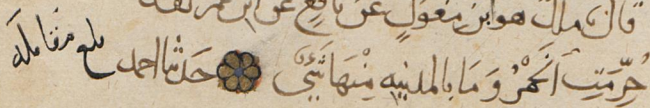 قال ملك هو ابن مغول عن نافع عن ابن عمر لقد
حُرِّمَتِ الْخَمْرُ وَمَا بِالمدينة مِنْهَا شَيْئٌ حَدثنا احمد
بلغ مقابلة